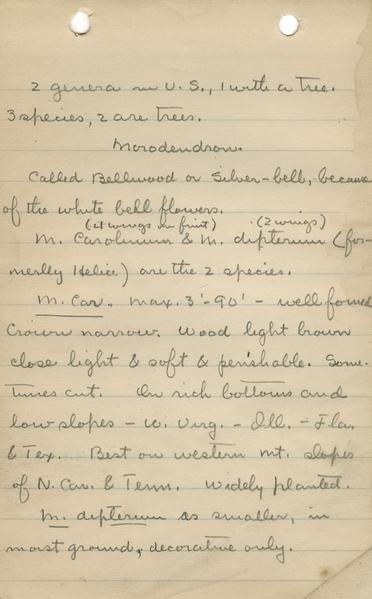 2 genera in U.S., 1 with a tree.
3 species, 2 are trees.
Morodendron.
Called Bellwood or Silver-bell, because
of the white bell flowers.
(4 wings on fruit) (2 wings)
M. Carolinum & M. dipterium (for-
merlly Helice) are the 2 species.
M. Car. max. 3'-90' - well formed
Crown narrow. Wood light brown
close light & soft & perishable. Some-
times cut. On rich bottoms and
low slopes - W. Virg. - Ill. - Fla.
& Tex. Best on western mt. slopes
of N. Car. & Tenn. Widely planted.
M. dipterium is smaller, in
moist ground, decorative only.